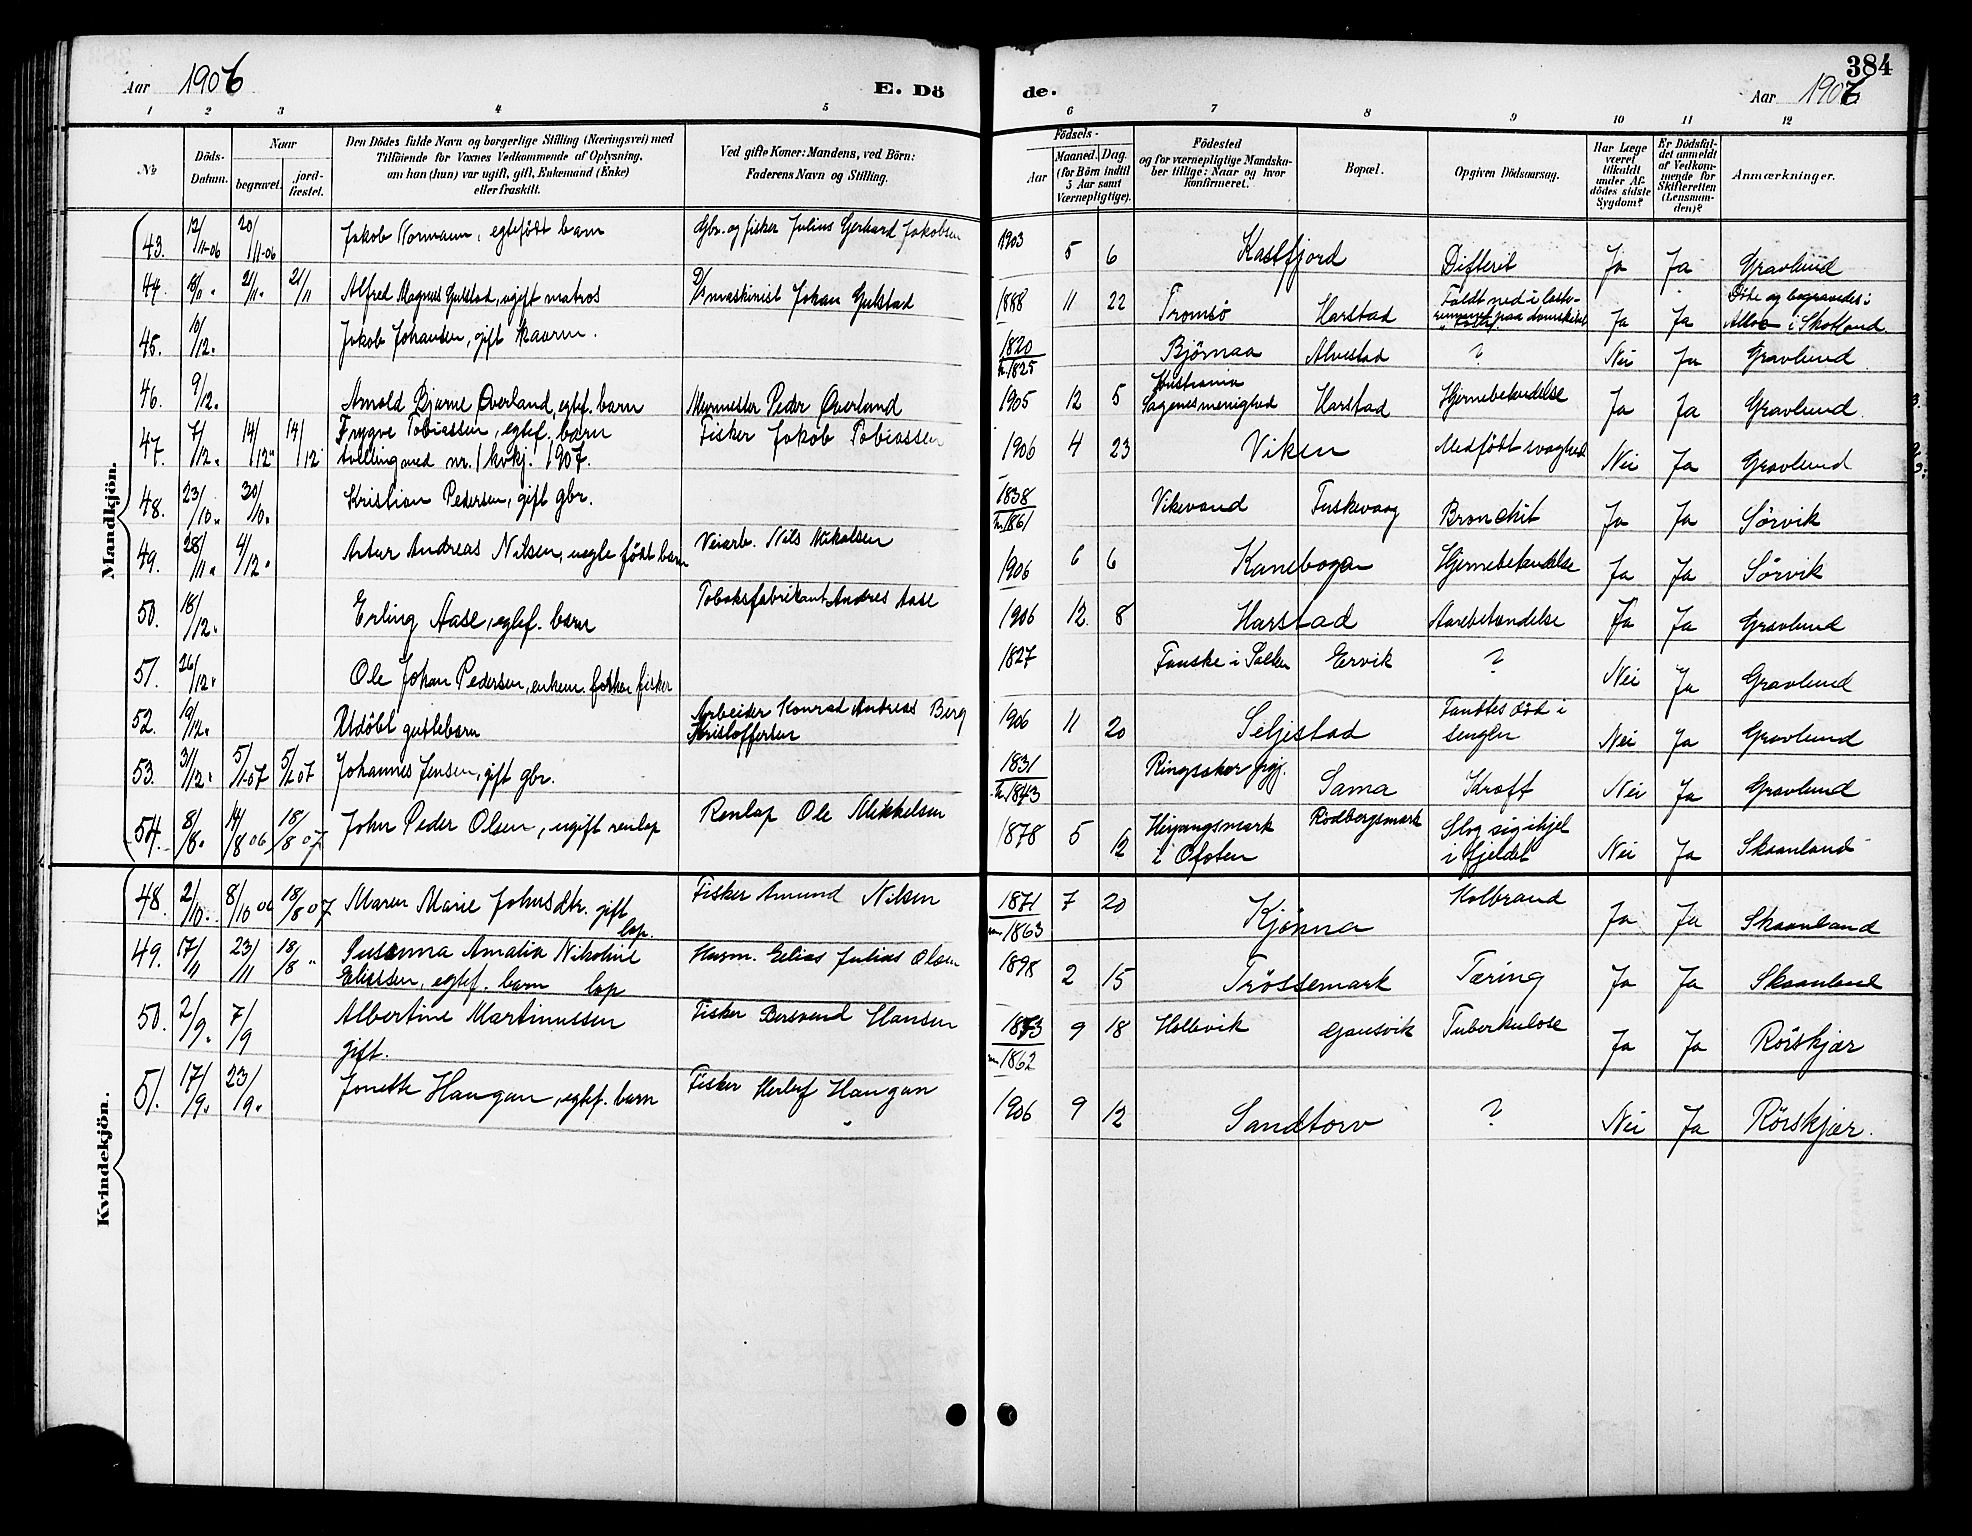 Aar 1906
E. Dö
de.
384
Aar 1906
1 2 3 4 5
6 7 8 9 10 11 12
No
Döds-Datum.
Naar
begravet.
jord-fæstet.
Den Dödes fulde Navn og borgerlige Stilling (Næringsvei) med
Tilföiende for Voxnes Vedkommende af Oplysning,
om han (hun) var ugift, gift, Enkemand (Enke)
eller fraskilt.
Ved gifte Koner: Mandens, ved Börn:
Faderens Navn og Stilling.
Födsels-
Aar
Maaned. Dag.
(for Börn indtil
5 Aar samt
Værnepligtige).
Födested
og for værnepligtige Mandska-
ber tillige: Naar og hvor
konfirmeret.
Bopæl.
Opgiven Dödsaarsag.
Har Læge
været
tilkaldt
under Af-
dödes sidste
Sygdom?
Er Dödsfal-
det anmeldt
af Vedkom-
mende for
Skifteretten
(Lensman-
den)?
Anmærkninger.
Mandkjön.
43. 12/11-06 20/11-06 Jakob Normann, egtefödt barn Gbr. og fisker Julius Gerhard Jakobsen 1903 5 6 Kastfjord Difterit Ja Ja Gravlund
44. 21/11 21/11 Alfred Magnus Gulstad, ugift matros maskinist Johan Gulstad 1888 11 22 Tromsö Harstad Faldt ned i laste-
rummet paa dampskibet Ja Ja Döde og begravedes i
Alloa i Skotland.
45. 10/12. Jakob Johansen, gift kaarm. 1820
1825 Björnaa Alvestad ? Nei Ja Gravlund
46. 9/12. Arnold Bjarne Överland, egtef. barn Murmester Peder Överland 1905 12 5 Kristiania
Sagenes menighed Harstad Hjernebetændelse Ja Ja Gravlund
47. 7/12. 14/12 14/12 Trygve Tobiassen, egtef. barn
tvilling med nr. 1 kvkj. 1907. Fisker Jakob Tobiassen 1906 4 23 Viken Medfödt svaghed Nei Ja Gravlund
48. 23/10. 30/10. Kristian Pedersen, gift gbr. 1838
1861 Vikevand Fuskevaag Bronchit Ja Ja Sörvik
49. 28/11. 4/12. Artur Andreas Nilsen, uegte födt barn Veiarb. Nils Nikolsen 1906 6 6 Kanebogen Hjernebetændelse Ja Ja Sörvik
50. 18/12. Erling Aase, egtef. barn Tobaksfabrikant Andres Aase 1906 12 8 Harstad Aarebetændelse Ja Ja Gravlund
51. 26/12. Ole Johan Pedersen, enkem. forhen fisker 1827 Fauske i Salten Ervik ? Nei Ja Gravlund
52. 19/12. Udöbt guttebarn Arbeider Konrad Andreas Berg
Kristoffersen 1906 11 20 Seljestad Fandtes död i
sengen Nei Ja Gravlund
53. 31/12. 5/1-07 5/1-07 Johannes Jensen, gift gbr. 1831
1843 Ringsaker prgj. Sama Kræft Nei Ja Gravlund
54. 8/8. 14/8 06 18/8 07 John Peder Olsen, ugift renlap Renlap Ole Mikkelsen 1878 5 12 i Ofoten Rödbergsmark Slog sig ihjel
i fjeldet Nei Ja Skaanland
Kvindekjön.
48. 2/10. 8/10 06 18/8 07 Maren Marie Johnsdtr. gift
lap. Fisker Amund Nilsen 1871
1863 7 20 Kjönna Kolbrand Ja Ja Skaanland
49. 17/11 23/11 18/8 " Susanna Amalia Nikoline
Eliassen, egtef. barn lap Husm. Elias Julius Olsen 1898 2 15 Trössemark Tæring Ja Ja Skaanland
50. 2/9. 7/9 Albertine Martinussen
gift. Fisker Bersvend Hansen 1873
1862 9 18 Hollevik Gausvik Tuberkulose Ja Ja Röiskjær
51. 17/9. 23/9. Jonette Haugan, egtef. barn Fisker Herlof Haugan 1906 9 12 Sandtorv ? Nei Ja Röiskjær.